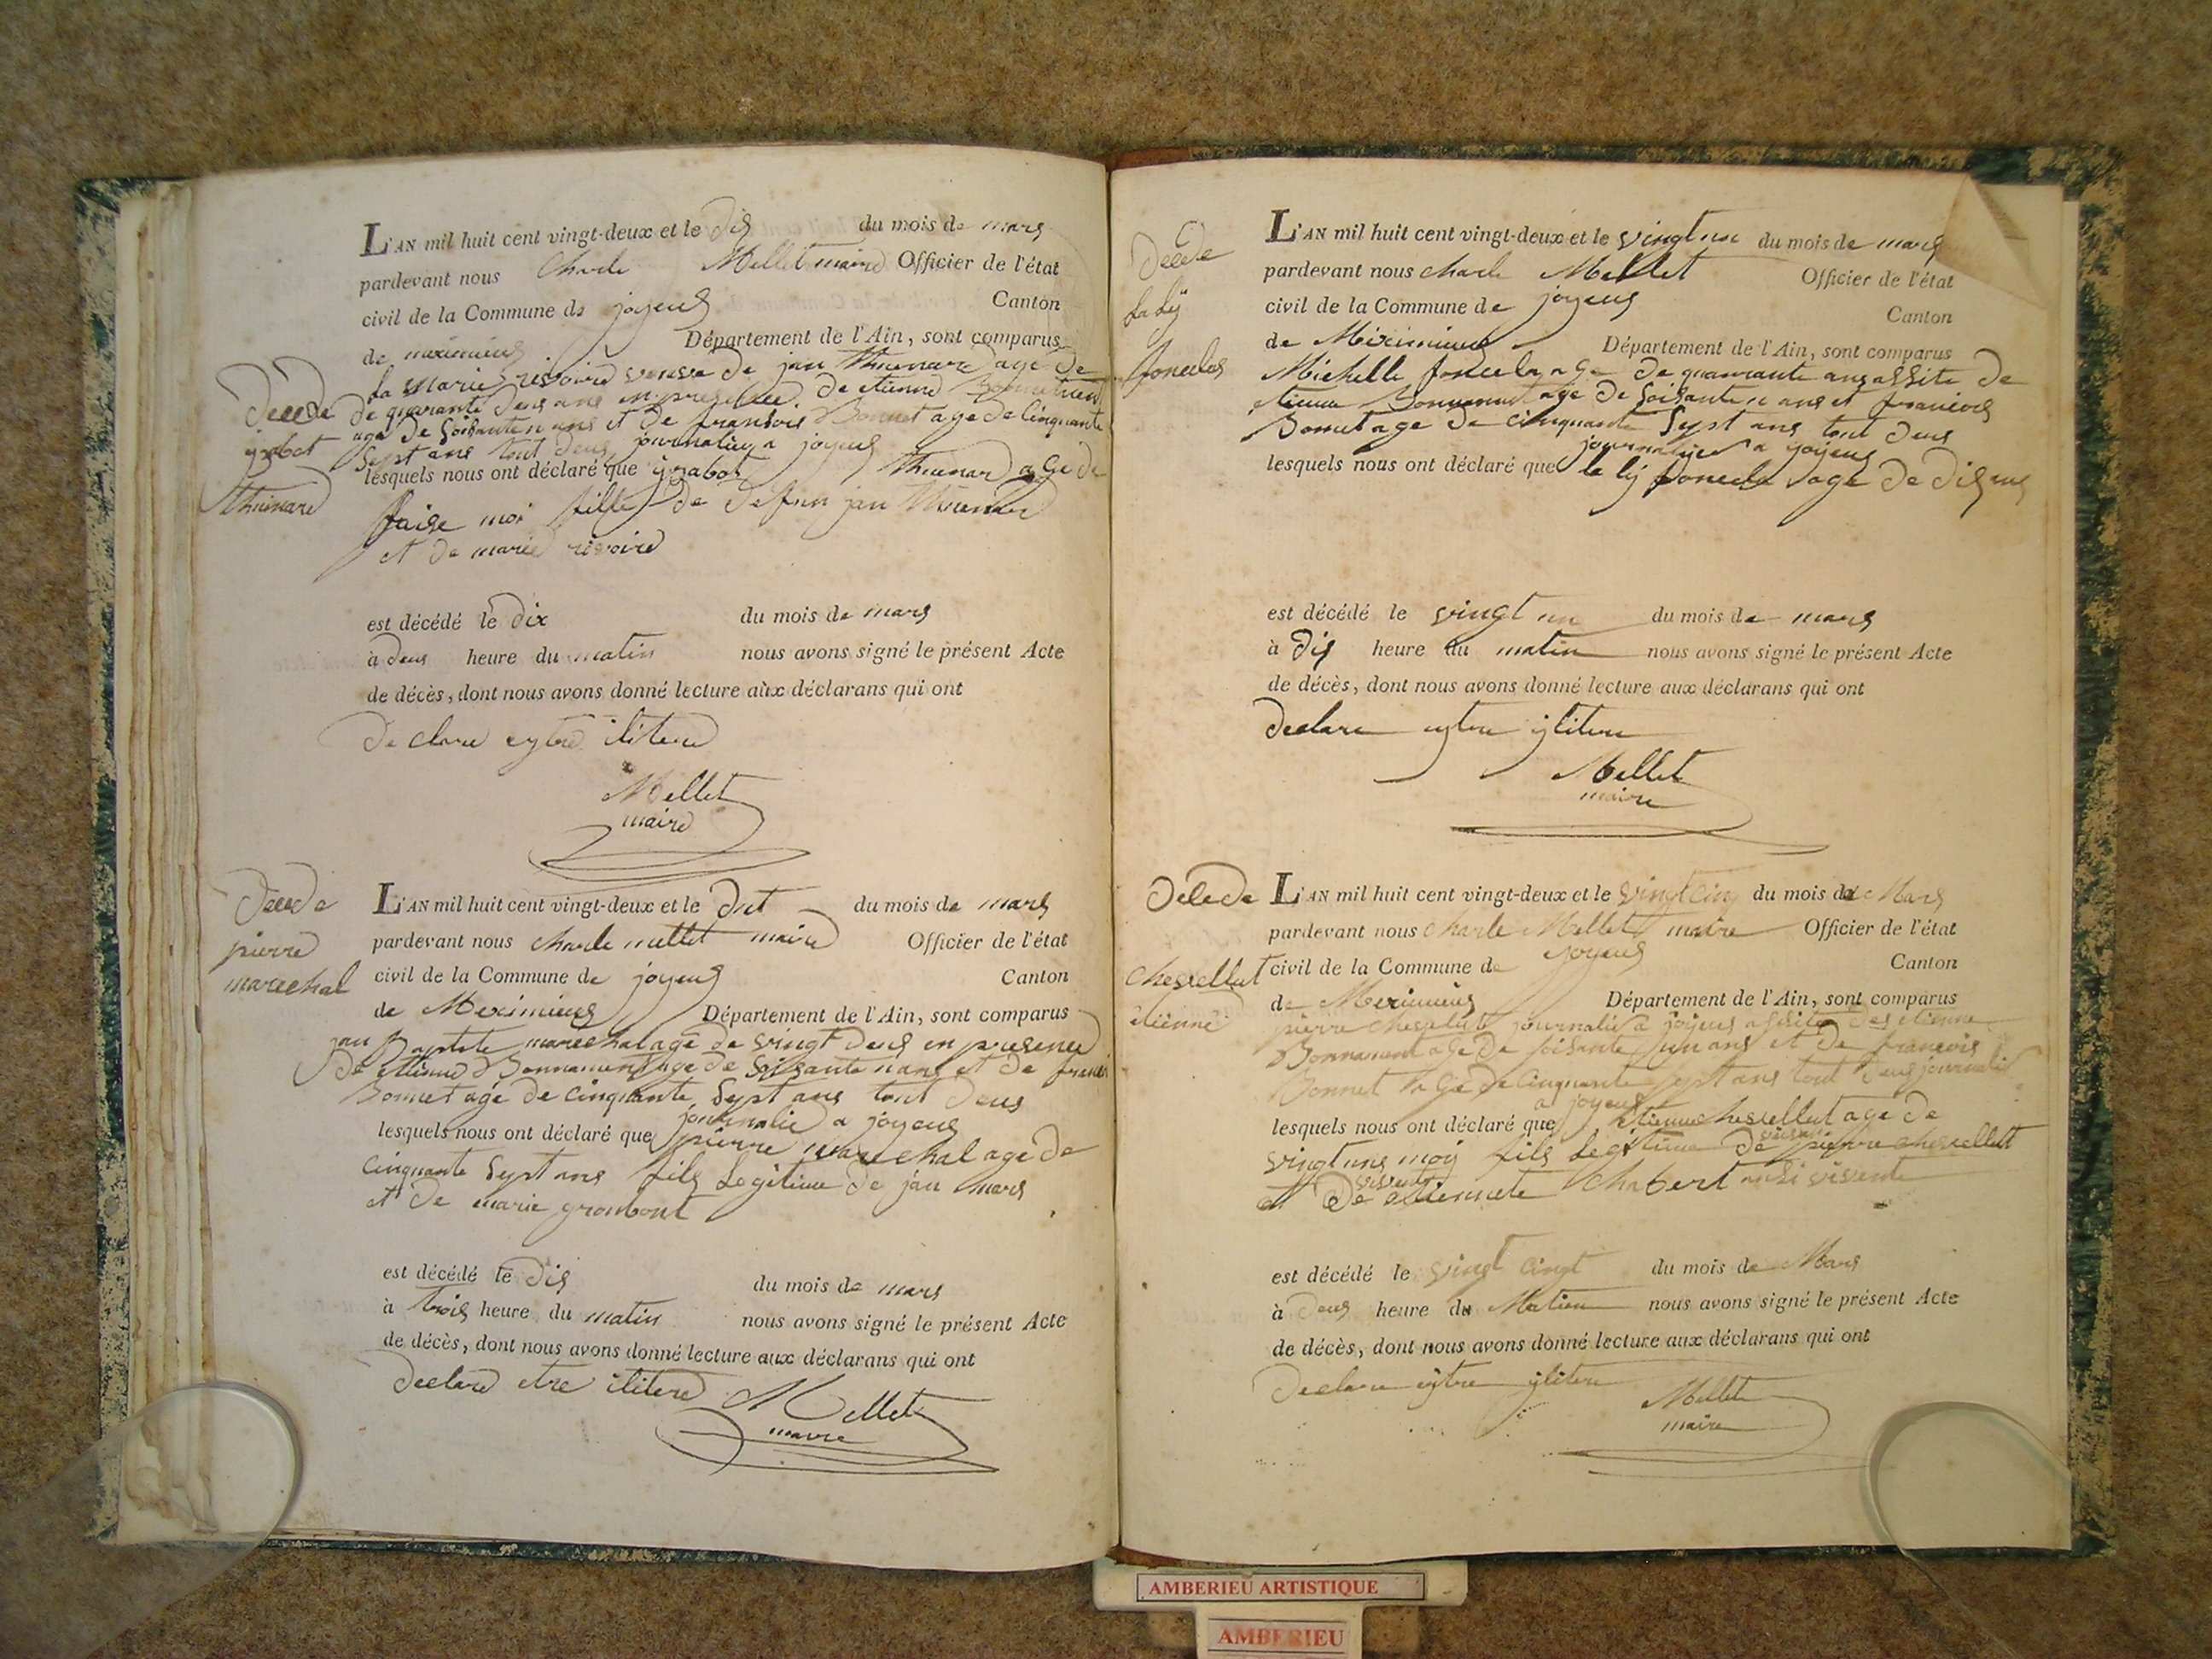 L'AN mil huit cent vingt-deux et le dis du mois de mars
pardevant nous Charle Mellet maire Officier de l'état
civil de la Commune de joyeus Canton
de meximieus Département de l'Ain, sont comparus
la marie revoire veuve de jan thienard age de
de quarante deus ans en presence de etienne
age de soisante n ans et de fransois Bonnet age de Cinquante
sept ans tout deus journaliy a joyeus
lesquels nous ont déclaré que ysabot thienard age de
saise moi fille de defun jan thienard
et de marie revoire
Decede
ysabot
thienard
est décédé le dix du mois de mars
à deus heure du matin nous avons signé le présent Acte
de décès, dont nous avons donné lecture aux déclarans qui ont
declare eytre iliterè
Mellet
maire
Decede
pierre
marechal
L'AN mil huit cent vingt-deux et le du mois de mars
pardevant nous charle mellet maire Officier de l'état
civil de la Commune de joyeus Canton
de Meximieus Département de l'Ain, sont comparus
jan Baptiste marechal age de vingt deus en presence
de etienne Bonnament age de soisante n ans et de francois
Bonnet agé de cinquante sept ans tout deus
journalie a joyeus
lesquels nous ont déclaré que pierre marechal age de
cinquante sept ans fils Legitime de jan mars
et de marie
est décédé le dis du mois de mars
à trois heure du matin nous avons signé le présent Acte
de décès, dont nous avons donné lecture aux déclarans qui ont
declare etre iliterè Mellet
maire
Decede
la ly
foncelas
L'AN mil huit cent vingt-deux et le vingt un du mois de mars
pardevant nous charle Mellet Officier de l'état
civil de la Commune de joyeus Canton
de Meximieus Département de l'Ain, sont comparus
Michelle age de quarante ans assite de
etienne age de soisante n ans et francois
Bonnet age de cinquante sept ans tout deus
journalier a joyeus
lesquels nous ont déclaré que la ly age de dis ans
est décédé le vingt un du mois de mars
à dis heure du matin nous avons signé le présent Acte
de décès, dont nous avons donné lecture aux déclarans qui ont
declare eytre yliterè
Mellet
maire
Decede
Chesellut
etienne
L'AN mil huit cent vingt-deux et le vingt cin du mois de Mars
pardevant nous Charle Mellet maire Officier de l'état
civil de la Commune de joyeus Canton
de Meximieus Département de l'Ain, sont comparus
pierre journalie a joyeus assite des etienne
Bonnament age de soisante un ans et de francois
Bonnet age de cinquante sept ans tout deus journalie
a joyeus
lesquels nous ont déclaré que etienne chesellut age de
vingt uns moy fils Legitime de pierre chesellut
et de etiennete Chabert ausi vivente
est décédé le vingt cingt du mois de Mars
à deus heure du Matien nous avons signé le présent Acte
de décès, dont nous avons donné lecture aux déclarans qui ont
declare eytre yliterè
Mellet
maire
AMBERIEU ARTISTIQUE
AMBERIEU